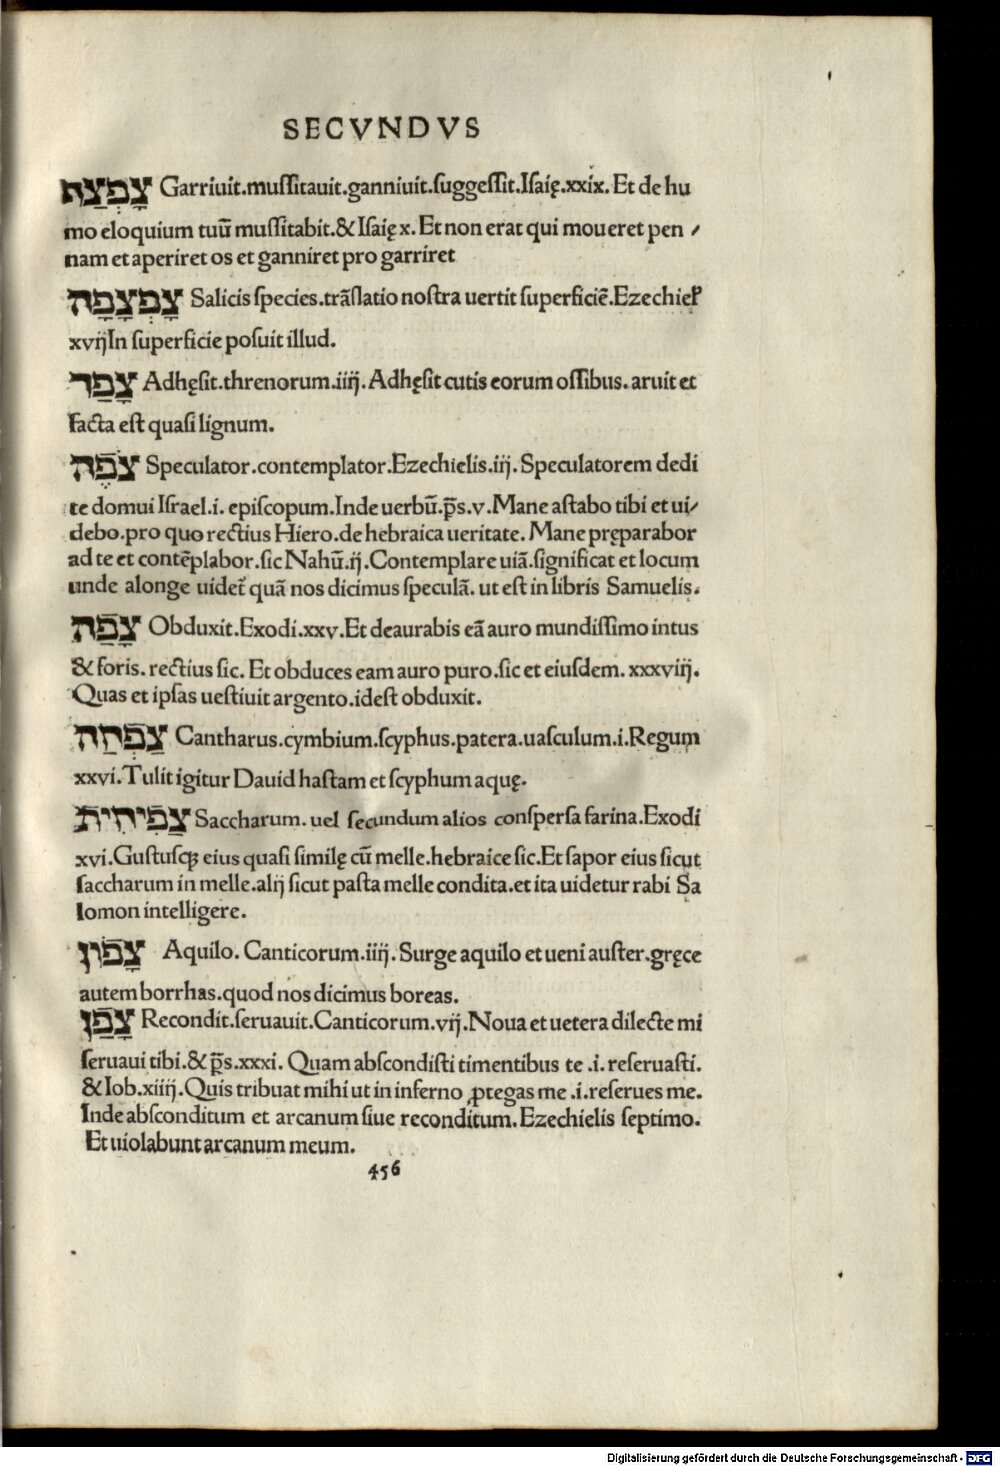 SECVNDVS
צָפְצַח Garriuit.muſſitauit.ganniuit.ſuggeſſit.Iſaię.xxix. Et de hu
mo eloquium tuū muſſitabit.& Iſaię x. Et non erat qui moueret pen⸗
nam et aperiret os et ganniret pro garriret
צָפְצָפָה Salicis ſpecies.trāſlatio noſtra uertit ſuperficiē.Ezechieł
xvijIn ſuperficie poſuit illud.
צָפַר Adhęſit.threnorum.iiij.Adhęſit cutis eorum oſſibus.aruit et
facta eſt quaſi lignum.
צֹפֶה Speculator.contemplator.Ezechielis.iij.Speculatorem dedi
te domui Iſrael.i. epiſcopum.Inde uerbū.p̄s.v.Mane aſtabo tibi et ui⸗
debo.pro quo rectius Hiero.de hebraica ueritate. Mane pręparabor
ad te et contēplabor.ſic Nahū.ij.Contemplare uiā.ſignificat et locum
unde alonge uidet̃ quā nos dicimus ſpeculā. ut eſt in libris Samuelis.
צָפָה Obduxit.Exodi.xxv.Et deaurabis eā auro mundiſſimo intus
& foris. rectius ſic. Et obduces eam auro puro.ſic et eiuſdem. xxxviij.
Quas et ipſas ueſtiuit argento.ideſt obduxit.
צַפְּחַה Cantharus.cymbium.ſcyphus.patera.uaſculum.i.Regum
xxvi.Tulit igitur Dauid haſtam et ſcyphum aquę.
צַפִּיחִית Saccharum. uel ſecundum alios conſperſa farina.Exodi
xvi.Guſtuſq; eius quaſi ſimilę cū melle.hebraice ſic.Et ſapor eius ſicut
ſaccharum in melle.alij ſicut paſta melle condita.et ita uidetur rabi Sa
lomon intelligere.
צָפוֹן Aquilo. Canticorum.iiij. Surge aquilo et ueni auſter.gręce
autem borrhas.quod nos dicimus boreas.
צָפַן Recondit.ſeruauit.Canticorum.vij.Noua et uetera dilecte mi
ſeruaui tibi.& p̄s.xxxi. Quam abſcondiſti timentibus te .i. reſeruaſti.
& Iob.xiiij.Quis tribuat mihi ut in inferno ꝓtegas me .i.reſerues me.
Inde abſconditum et arcanum ſiue reconditum. Ezechielis ſeptimo.
Et uiolabunt arcanum meum.
456
Digitalisierung gefördert durch die Deutsche Forschungsgemeinschaft - DFG